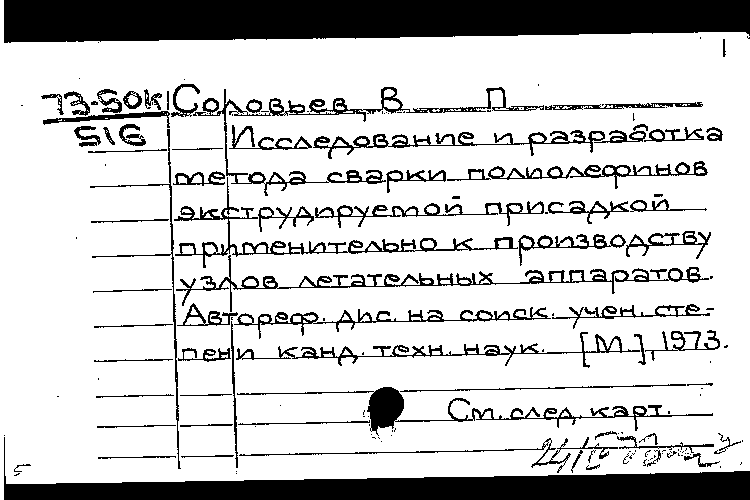 73-50К Соловьев, В П
516 Исследование и разработка
метода сварки полиолефинов
экструдируемой присадкой
применительно к производству
узлов летательных аппаратов.
Автореф. дис. на соиск. учен. сте-
пени канд. техн. наук. [М.], 1973.
См. след. карт.
5